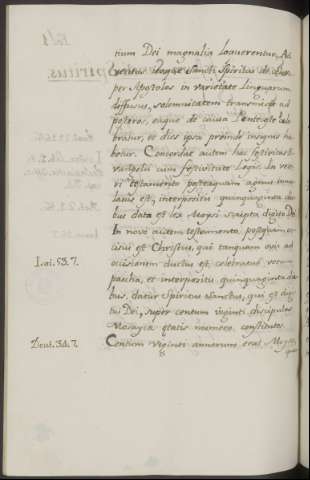 tium Dei magnalia loquerentur, Ad
ventus itaque Sancti Spiritus de super
per Apostolos in varietate linguarum
diffusus, solemnitatem transmisit ad
posteros, eaque de causa Pentecoste cele
bratur, et dies ipsa proinde insignis ha
betur. Concordat autem hæc festivitas E
vangelii cum festivitate Legis da ve
ri testamento postquam agnus immo
latus est, interpositis quinquaginta die
bus data est lex Moysi scripta digito Dei
In novo autem testamento, postquam oc
cisus est Christus, qui tanquam ovis ad
occisionem ductus est, celebratur verum
pascha, et interpositis quinquaginta die
bus, datur Spiritus Sanctus, qui est digi
tus Dei, super centum viginti discipulos
Mosayca ætatis numero constitutos.
Centum viginti annorum erat Moyses
Isai. 53. 7.
Deut. 34. 7.